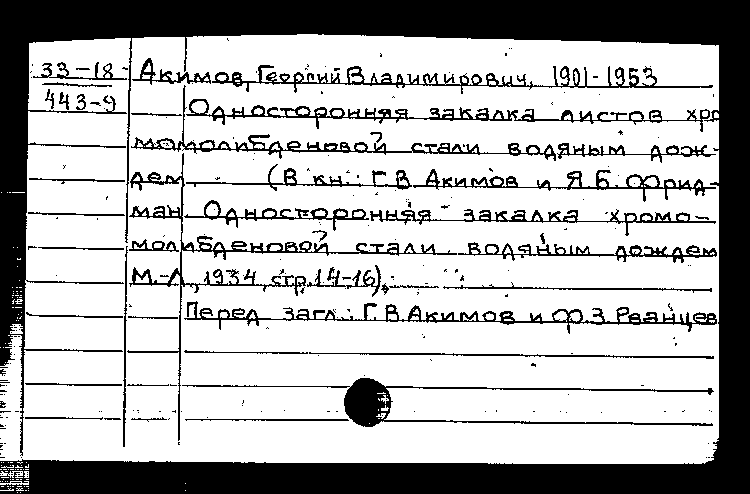 33-18 Акимов, Георгий Владимирович, 1901-1953
443-9 Односторонняя закалка листов хро
момолибденовой стали водяным дож-
дем. (В кн.: Г.В. Акимов и Я.Б. Фрид-
ман. Односторонняя закалка хромо-
молибденовой стали водяным дождем
М.-Л., 1934, стр. 14-16).
Перед загл.: Г.В. Акимов и Ф.З. Рванцев